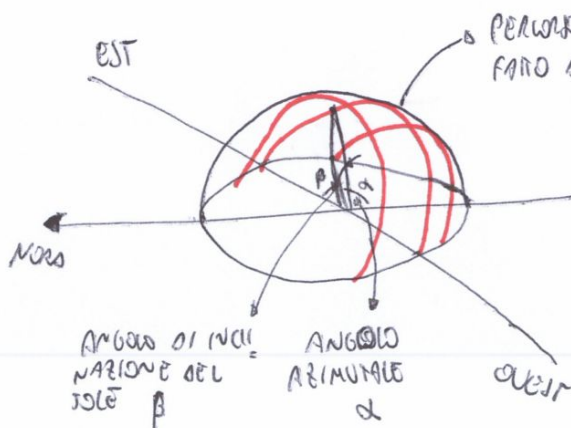 EST
PERCORS
FATTO D
β
α
NORD
ANGOLO DI INCLI
NAZIONE DEL
SOLE β
ANGOLO
AZIMUTALE
α
OVEST